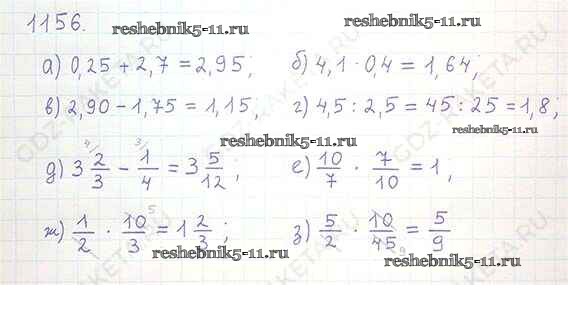 1156. reshebnik5-11.ru reshebnik5-11.ru
а) 0,25 + 2,7 = 2,95; б) 4,1 · 0,4 = 1,64;
в) 2,90 − 1,75 = 1,15, г) 4,5 : 2,5 = 45 : 25 = 1,8;
reshebnik5-11.ru reshebnik5-11.ru
д) 3 2/3 − 1/4 = 3 5/12; е) 10/7 · 7/10 = 1,
ж) 1/2 · 10/3 = 1 2/3; з) 5/2 · 10/45 = 5/9
reshebnik5-11.ru reshebnik5-11.ru
GDZ-RAKETA.RU